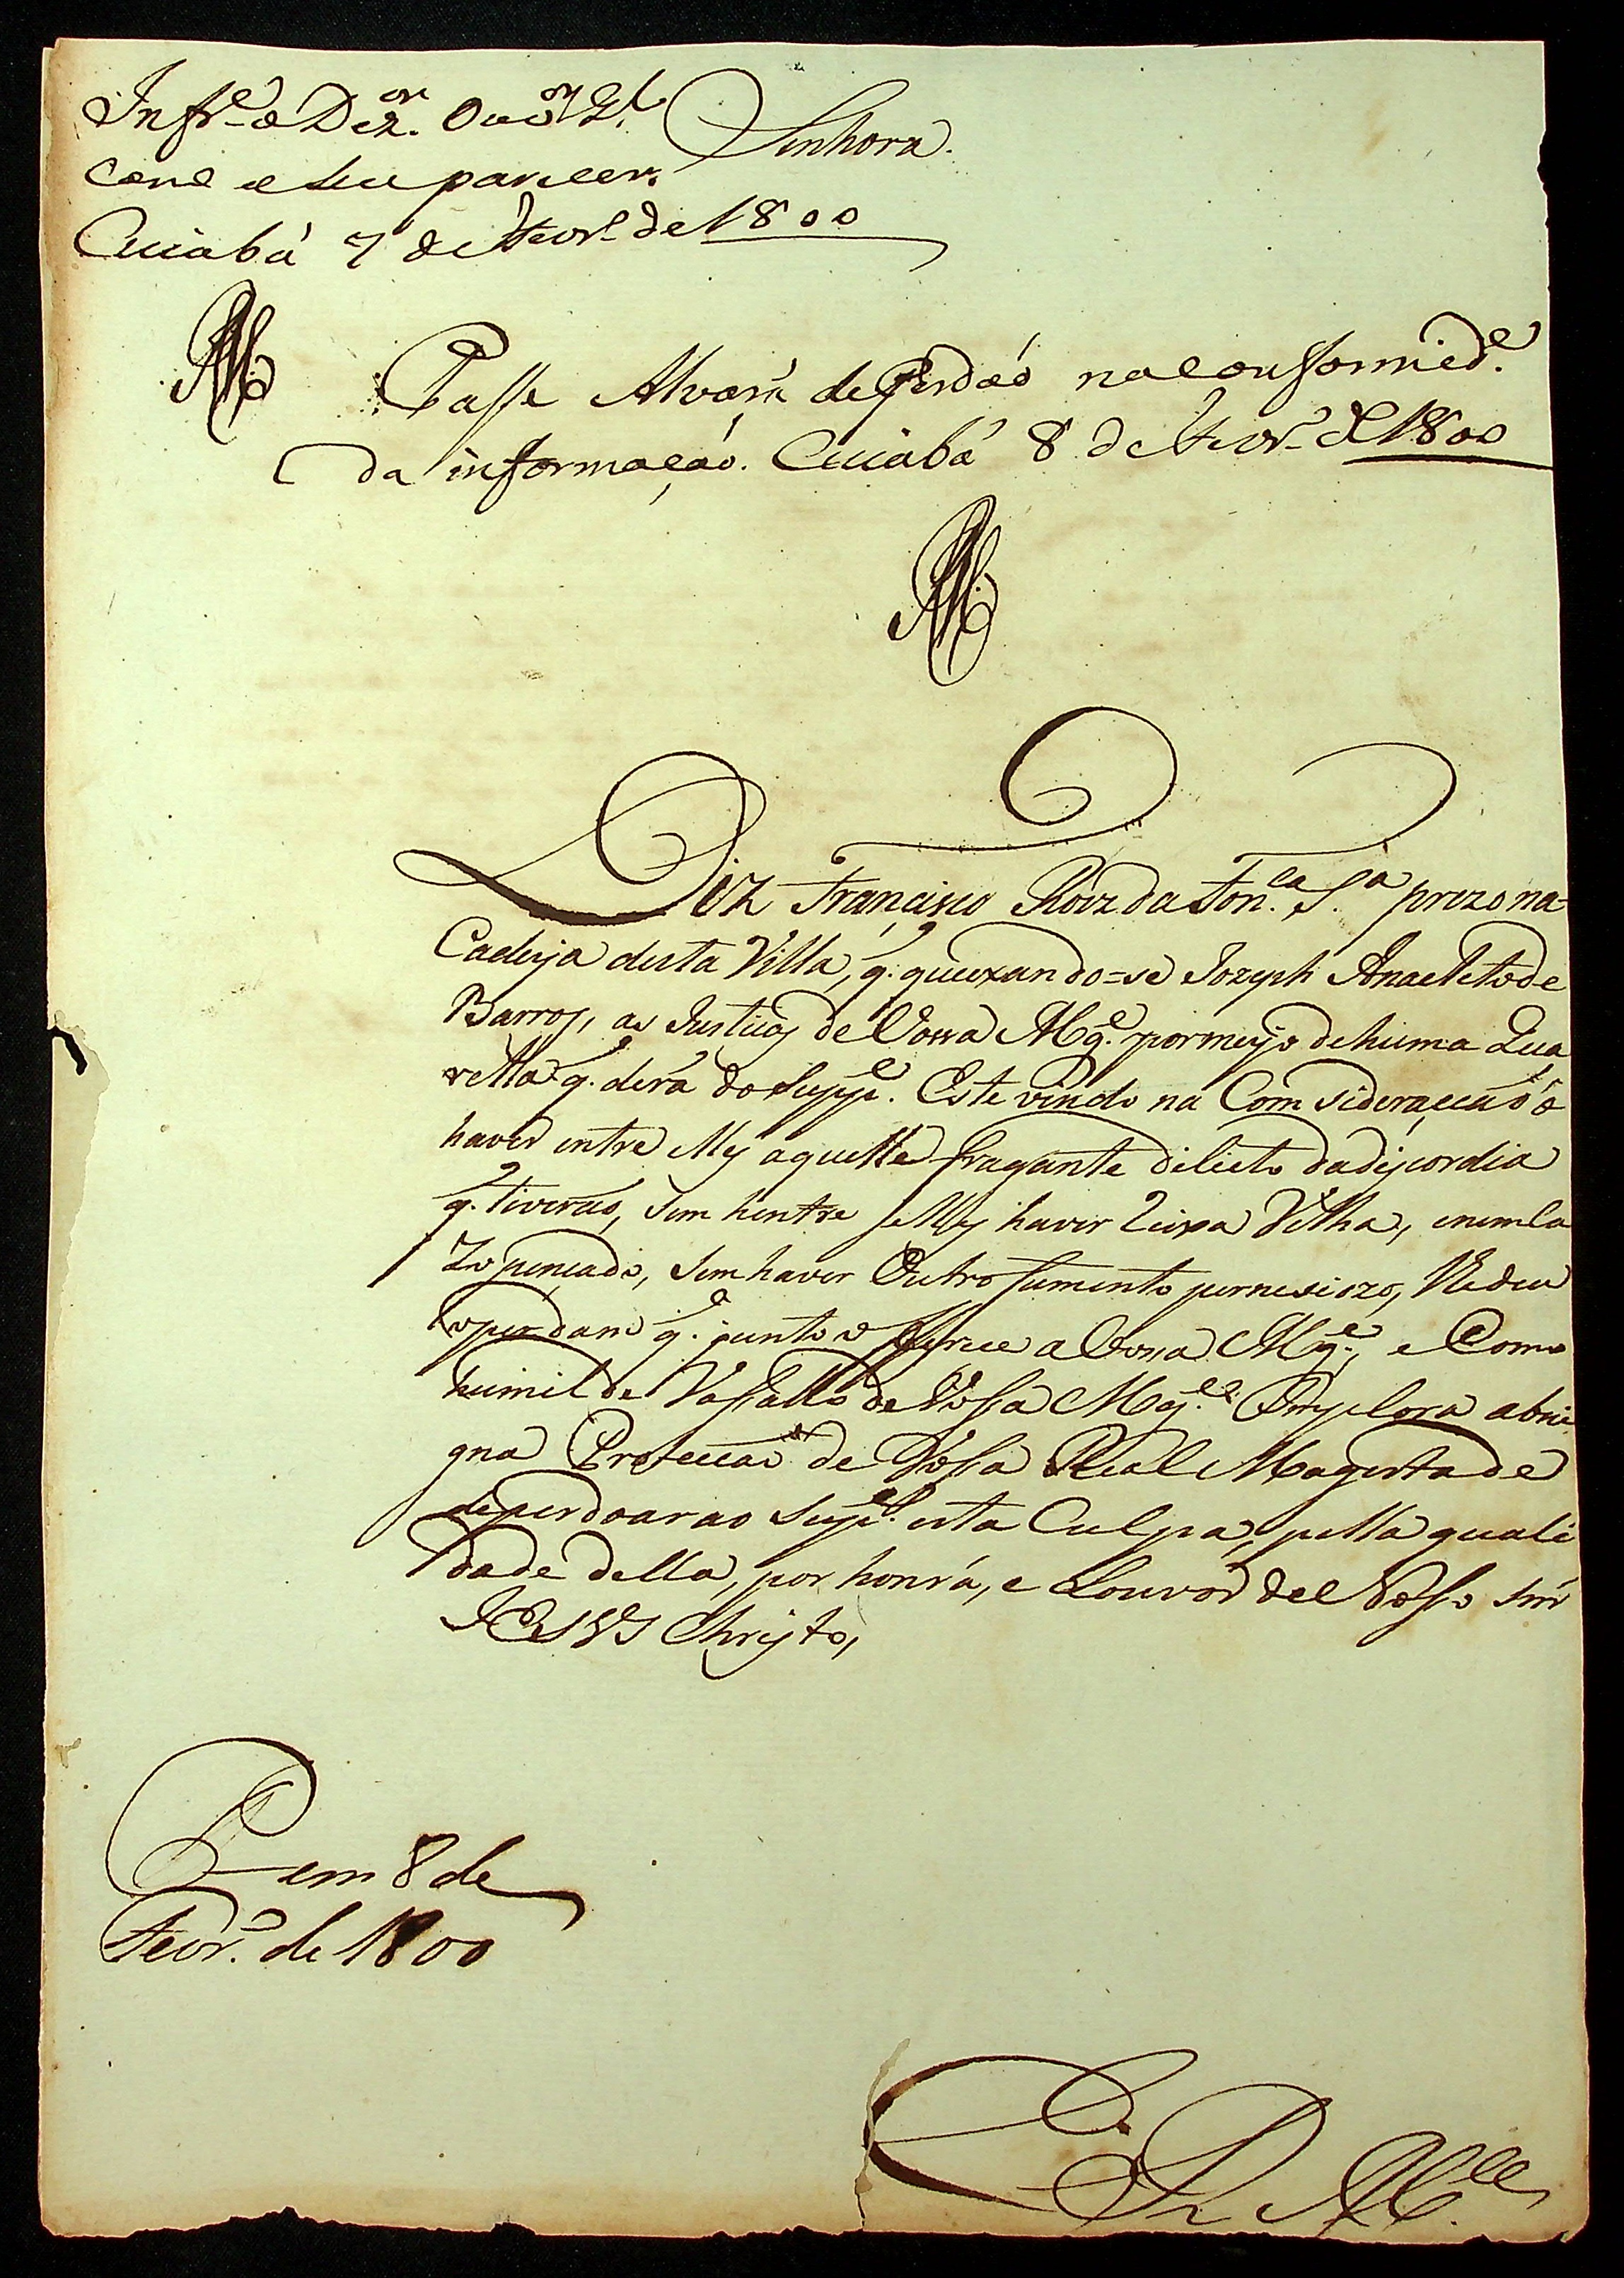 Infr.e o Dez.or Ouv.or G.l
Senhora.
com o seu parecer.
Cuiabá 7 de Fevr.o de 1800
Passe Alvará de Perdaó na conformid.e
da informaçaó. Cuiabá 8 de Fevr.o de 1800
Diz Francisco Roiz da Fon.ca S.a prezo na
Cadeya desta Villa, q. queixando=se Jozeph Anacleto de
Barros, as Justiças de Vossa Mg.e por meyo de huma Que
rella q. dera do Supp.e. Este vindo na Comsideraçcaó o
haver entre elles aquelle fragante delicto da discordia
q. tiveraó, sem hentre selles haver Reixa Velha, e nem Ca
zo pençado, sem haver Outro sumento pernesiozo, lhe deu
o perdam q. junto offerece a Vossa Mg.e, e Como
humilde Vassallo de Vossa Mag.e Implora a beni
gna Protecçaó de Vossa Real Magestade
de perdoar ao Sup.e esta Culpa, pella quali
dade della, por honra, e Louvor del Nosso Snr
JESUS Christo,
P. em 8 de
Fevr.o de 1800
E R M.ce